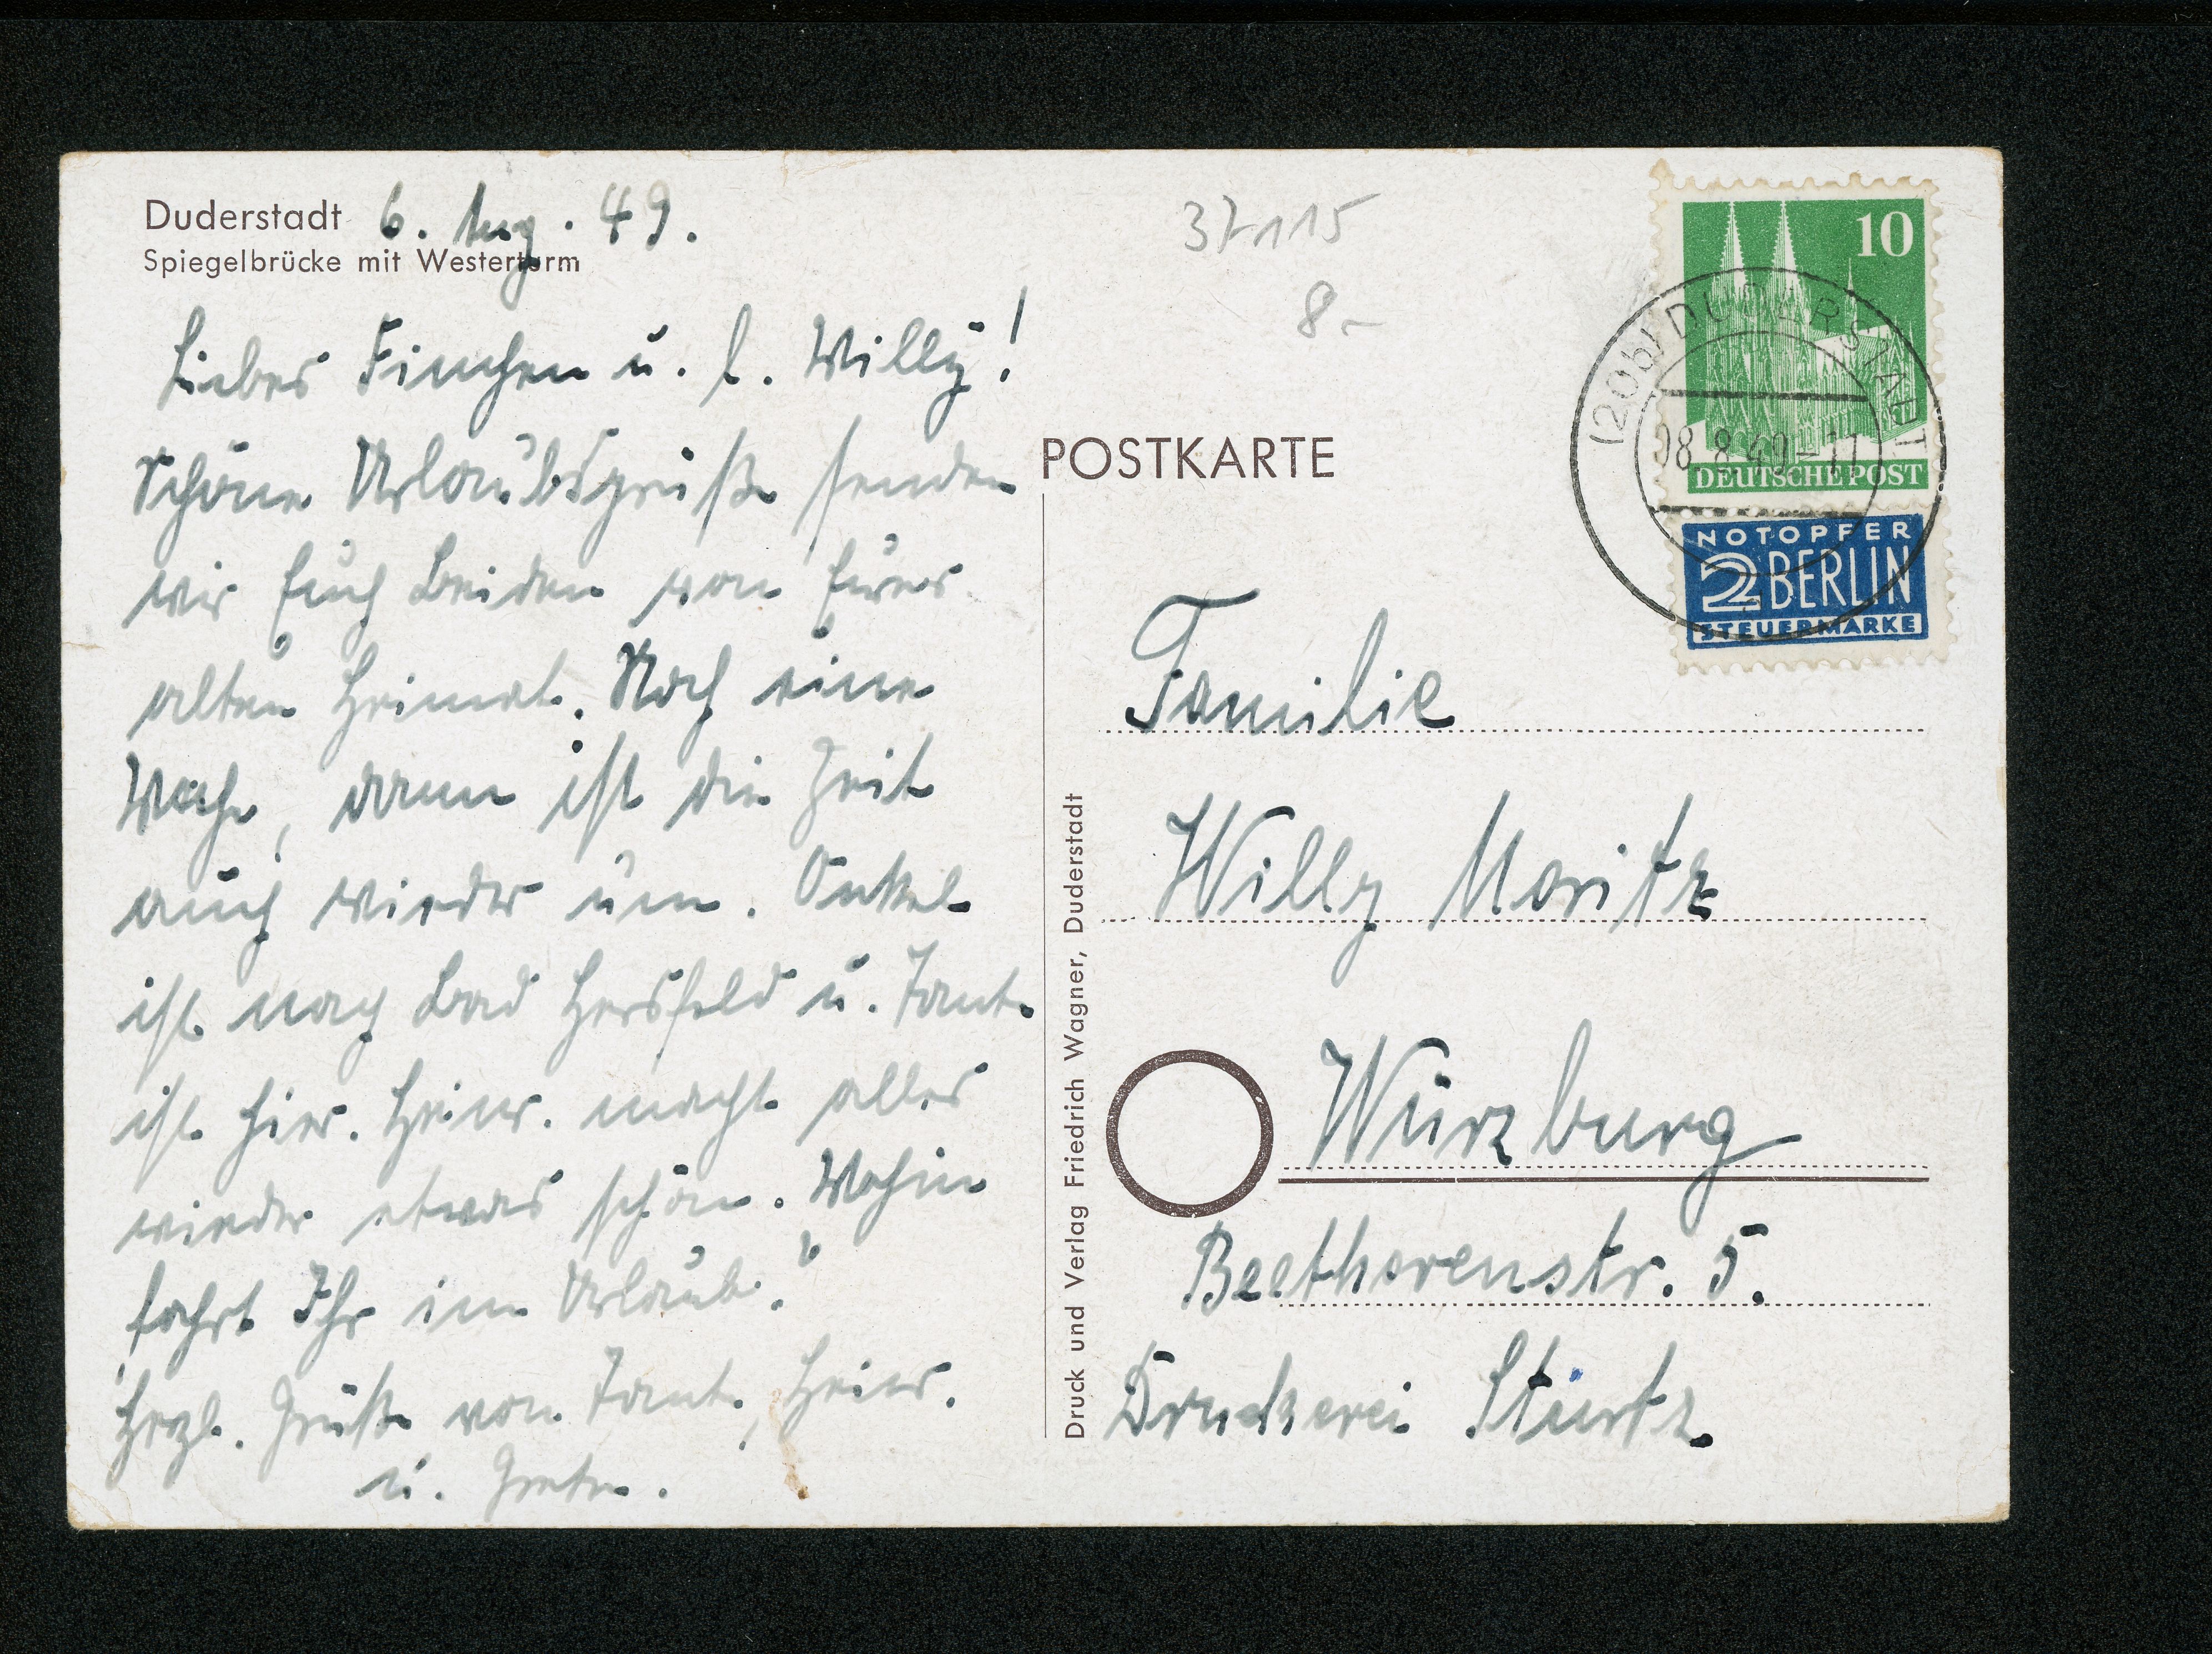 Duderstadt 6. Aug. 49.
Spiegelbrücke mit Westerturm
Liebes Finchen u. l. Willy!
Schöne Urlaubsgrüße senden
wir Euch beiden von Eurer
alten Heimat. Noch eine
Woche, dann ist die Zeit
auch wieder um. Onkel
ist nach Bad Hersfeld u. Tante
ist hier. Heinr. macht alles
wieder etwas schön. Wohin
fahrt Ihr im Urlaub?
Herzl. Grüße von Tante, Heinr.
u. Grete.
37115
8.-
POSTKARTE
Druck und Verlag Friedrich Wagner, Duderstadt
10
DEUTSCHE POST
(20b) DUDERSTADT
08.8.49-11
NOTOPFER
2 BERLIN
STEUERMARKE
Familie
Willy Moritz
Würzburg
Beethovenstr. 5.
Druckerei Stürtz